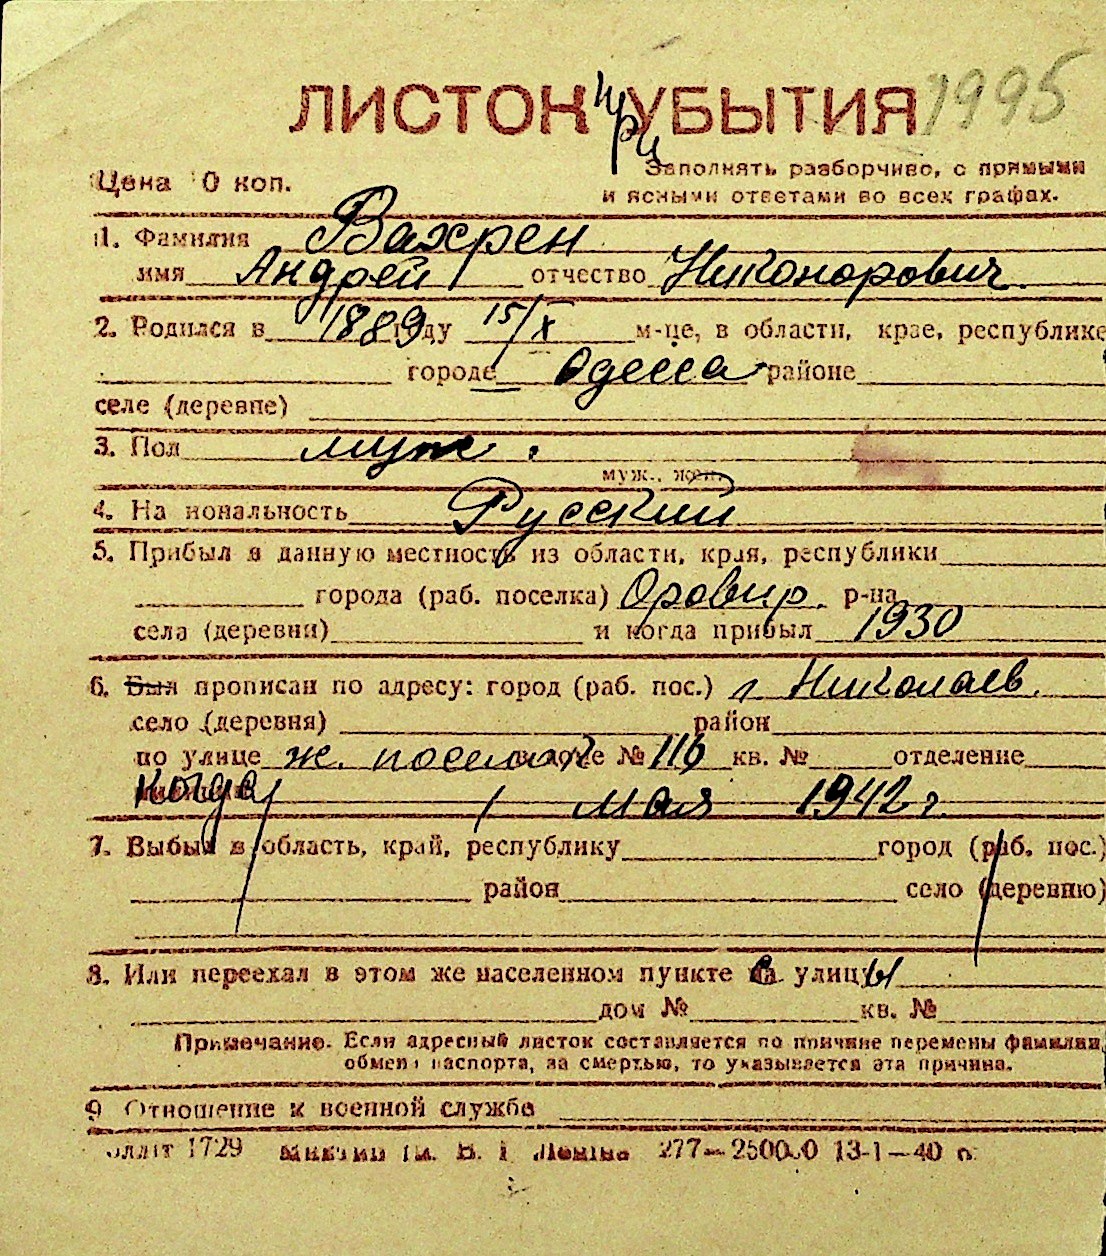 ЛИСТОК при УБЫТИЯ 1995
Цена 10 коп.
Заполнять разборчиво, с прямыми
и ясными ответами во всех графах.
1. Фамилия Вахрен
имя Андрей отчество Никонорович
2. Родился в 1889 году 15/X м-це, в области, крае, республике
городе Одесса районе
селе (деревне)
3. Пол муж.
муж., жен.
4. Национальность Русский
5. Прибыл в данную местность из области, края, республики
города (раб. поселка) р-на
села (деревни) и когда прибыл 1930
6. Был прописан по адресу: город (раб. пос.) г Николаев.
село (деревня) район
по улице ж. поселок доме № 116 кв. № отделение
Когда 1 мая 1942 г.
7. Выбыл в область, край, республику город (раб. пос.)
район село (деревню)
8. Или переехал в этом же населенном пункте с улицы
дом № кв. №
Примечание. Если адресный листок составляется по причине перемены фамилии,
обмена паспорта, за смертью, то указывается эта причина.
9 Отношение к военной службе
1729 277—25000 13-1—40 г.